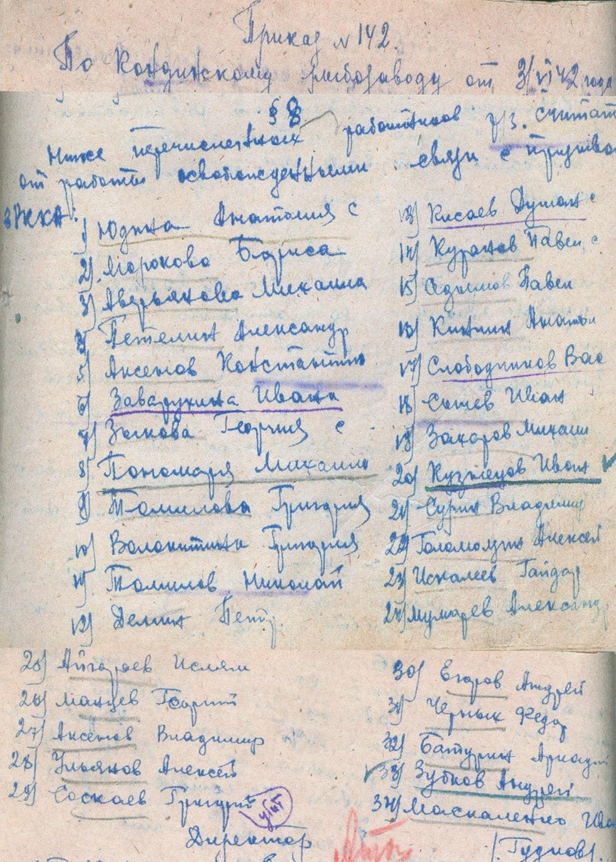 Приказ №142.
По Кондинскому рыбозаводу от 3/VI 42 года
§ 8
Ниже перечисленных работников р/з. считат
от работы освобожденными связи с призыво
в РККА:
1) Юдина Анатолия с
2) Морокова Бориса
3) Аверьянова Михаила
4) Петелин Александр
5) Аксенов Константин
6) Заварухина Ивана
7) Зыкова Георгия с
8) Пономаря Михаила
9) Томилова Григория
10) Волокитина Григория
11) Томилов Николай
12) Демин Петр
13) Кисаев с
14) Куранов Павел с
15) Павел
16) Кинин Анатол
17) Слободчиков Вас
18) Иван
19) Захаров Михаил
20) Кузнецов Иван
21) Сурин Владимир
22) Голомазин Алексей
23) Искалеев Гайдар
24) Мумарев Александр
25) Айгараев Ислям
26) Георгий
27) Аксенов Владимир
28) Ульянов Алексей
29) Соскаев Григорий убит
30) Егоров Андрей
31) Черных Федор
32) Батурин Аркадий
33) Зубков Андрей
34) Москаленко Ива
Директор /Гудков/